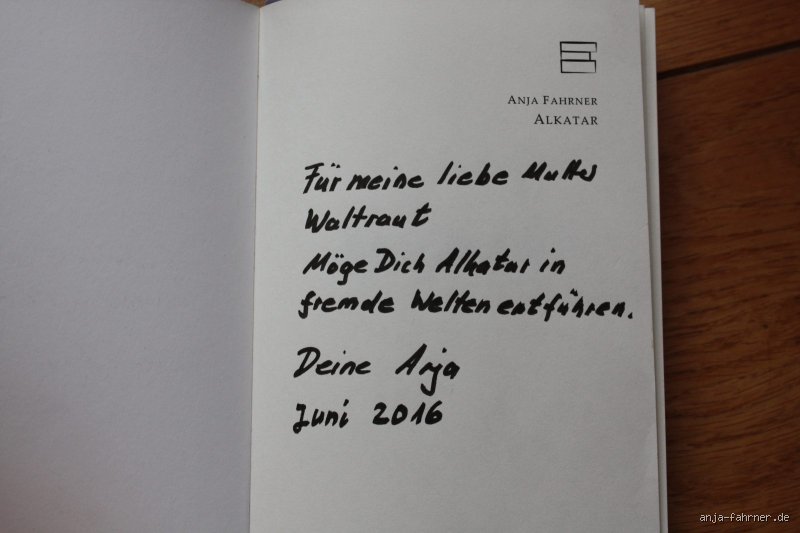 ANJA FAHRNER
ALKATAR
Für meine liebe Mutter
Waltraut
Möge Dich Alkatar in
fremde Welten entführen.
Deine Anja
Juni 2016
anja-fahrner.de